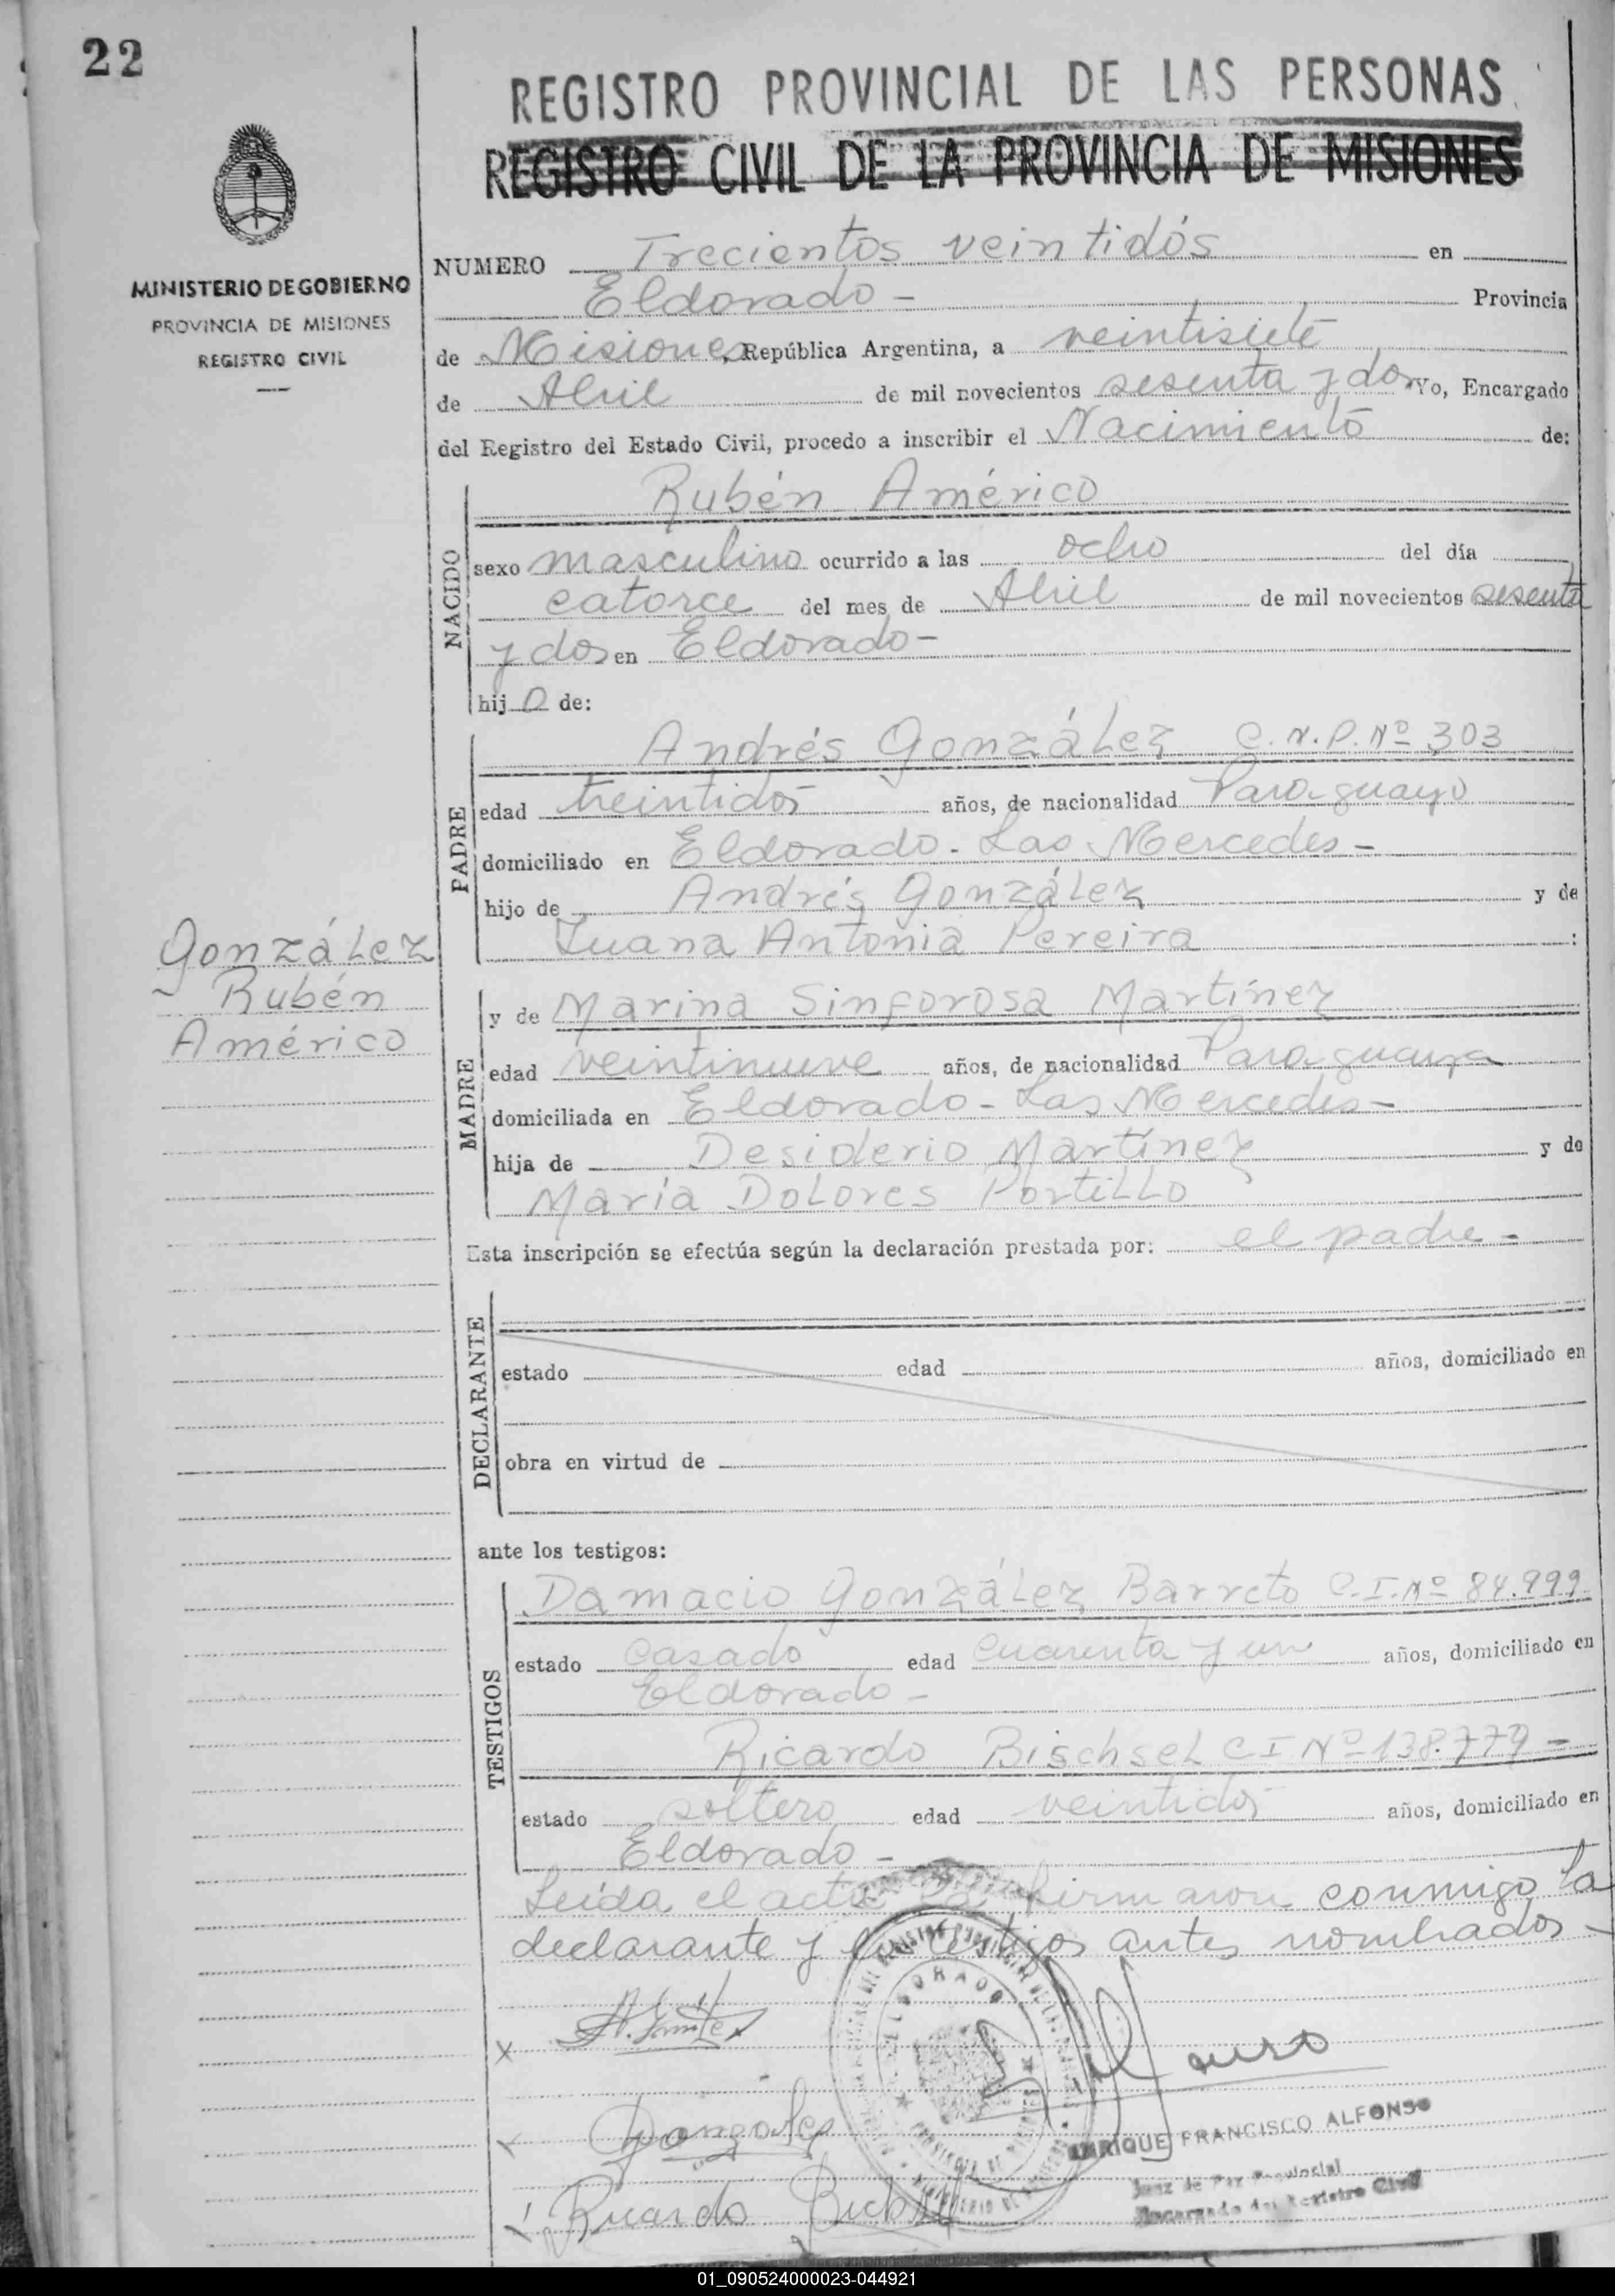 22
REGISTRO PROVINCIAL DE LAS PERSONAS
REGISTRO CIVIL DE LA PROVINCIA DE MISIONES
MINISTERIO DE GOBIERNO
PROVINCIA DE MISIONES
REGISTRO CIVIL
NUMERO Trecientos veintidós en
Eldorado - Provincia
de Misiones, República Argentina, a veintisiete
de Abril de mil novecientos sesenta y dos Yo, Encargado
del Registro del Estado Civil, procedo a inscribir el Nacimiento de:
NACIDO
Rubén Américo
sexo masculino ocurrido a las ocho del día
catorce del mes de Abril de mil novecientos sesenta
y dos en Eldorado -
hijo de:
PADRE
Andrés González C.N.P. Nº 303
edad treintidos años, de nacionalidad Paraguayo
domiciliado en Eldorado - Las Mercedes -
hijo de Andrés González y de
Juana Antonia Pereira :
González
Rubén
Américo
MADRE
y de Marina Sinforosa Martínez
edad veintinueve años, de nacionalidad Paraguaya
domiciliada en Eldorado - Las Mercedes -
hija de Desiderio Martínez y de
María Dolores Portillo
Esta inscripción se efectúa según la declaración prestada por: el padre -
DECLARANTE
estado edad años, domiciliado en
obra en virtud de
ante los testigos:
TESTIGOS
Damacio González Barreto C.I. Nº 84.999
estado casado edad cuarenta y un años, domiciliado en
Eldorado -
Ricardo Bischsel C I Nº 138.779 -
estado soltero edad veintidos años, domiciliado en
Eldorado -
Leida el acta la firmaron conmigo la
declarante y los testigos antes nombrados -
ELDORADO
Gonzalez
ENRIQUE FRANCISCO ALFONSO
Juez de Paz Provincial
Encargado del Registro Civil
Ricardo
01_090524000023-044921